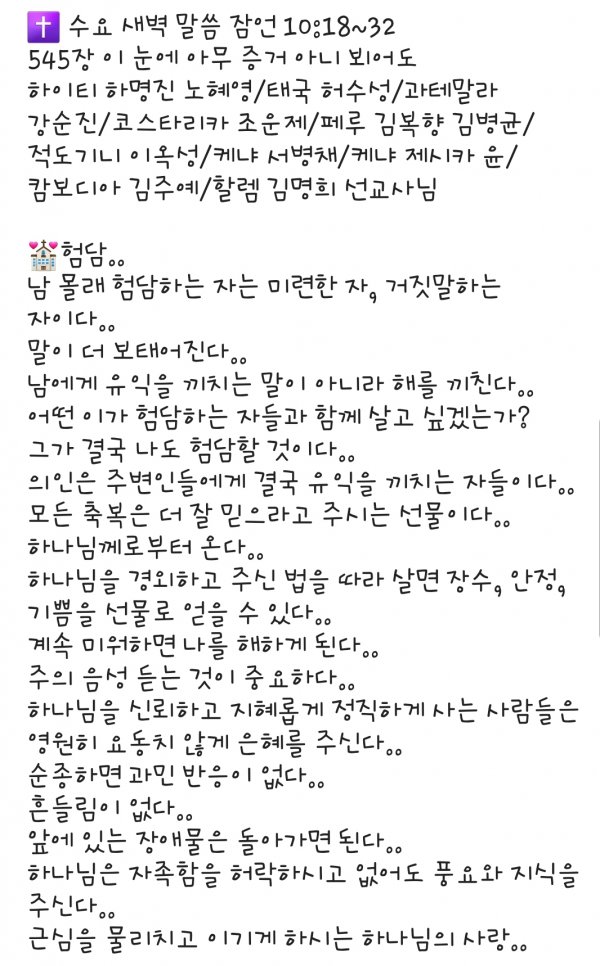 ✝️ 수요 새벽 말씀 잠언 10:18~32
545장 이 눈에 아무 증거 아니 뵈어도
하이티 하명진 노혜영/태국 허수성/과테말라
강순진/코스타리카 조운제/페루 김복향 김병균/
적도기니 이옥성/케냐 서병채/케냐 제시카 윤/
캄보디아 김주예/할렘 김명희 선교사님

💒험담..
남 몰래 험담하는 자는 미련한 자, 거짓말하는
자이다..
말이 더 보태어진다..
남에게 유익을 끼치는 말이 아니라 해를 끼친다..
어떤 이가 험담하는 자들과 함께 살고 싶겠는가?
그가 결국 나도 험담할 것이다..
의인은 주변인들에게 결국 유익을 끼치는 자들이다..
모든 축복은 더 잘 믿으라고 주시는 선물이다..
하나님께로부터 온다..
하나님을 경외하고 주신 법을 따라 살면 장수, 안정,
기쁨을 선물로 얻을 수 있다..
계속 미워하면 나를 해하게 된다..
주의 음성 듣는 것이 중요하다..
하나님을 신뢰하고 지혜롭게 정직하게 사는 사람들은
영원히 요동치 않게 은혜를 주신다..
순종하면 과민 반응이 없다..
흔들림이 없다..
앞에 있는 장애물은 돌아가면 된다..
하나님은 자족함을 허락하시고 없어도 풍요와 지식을
주신다..
근심을 물리치고 이기게 하시는 하나님의 사랑..